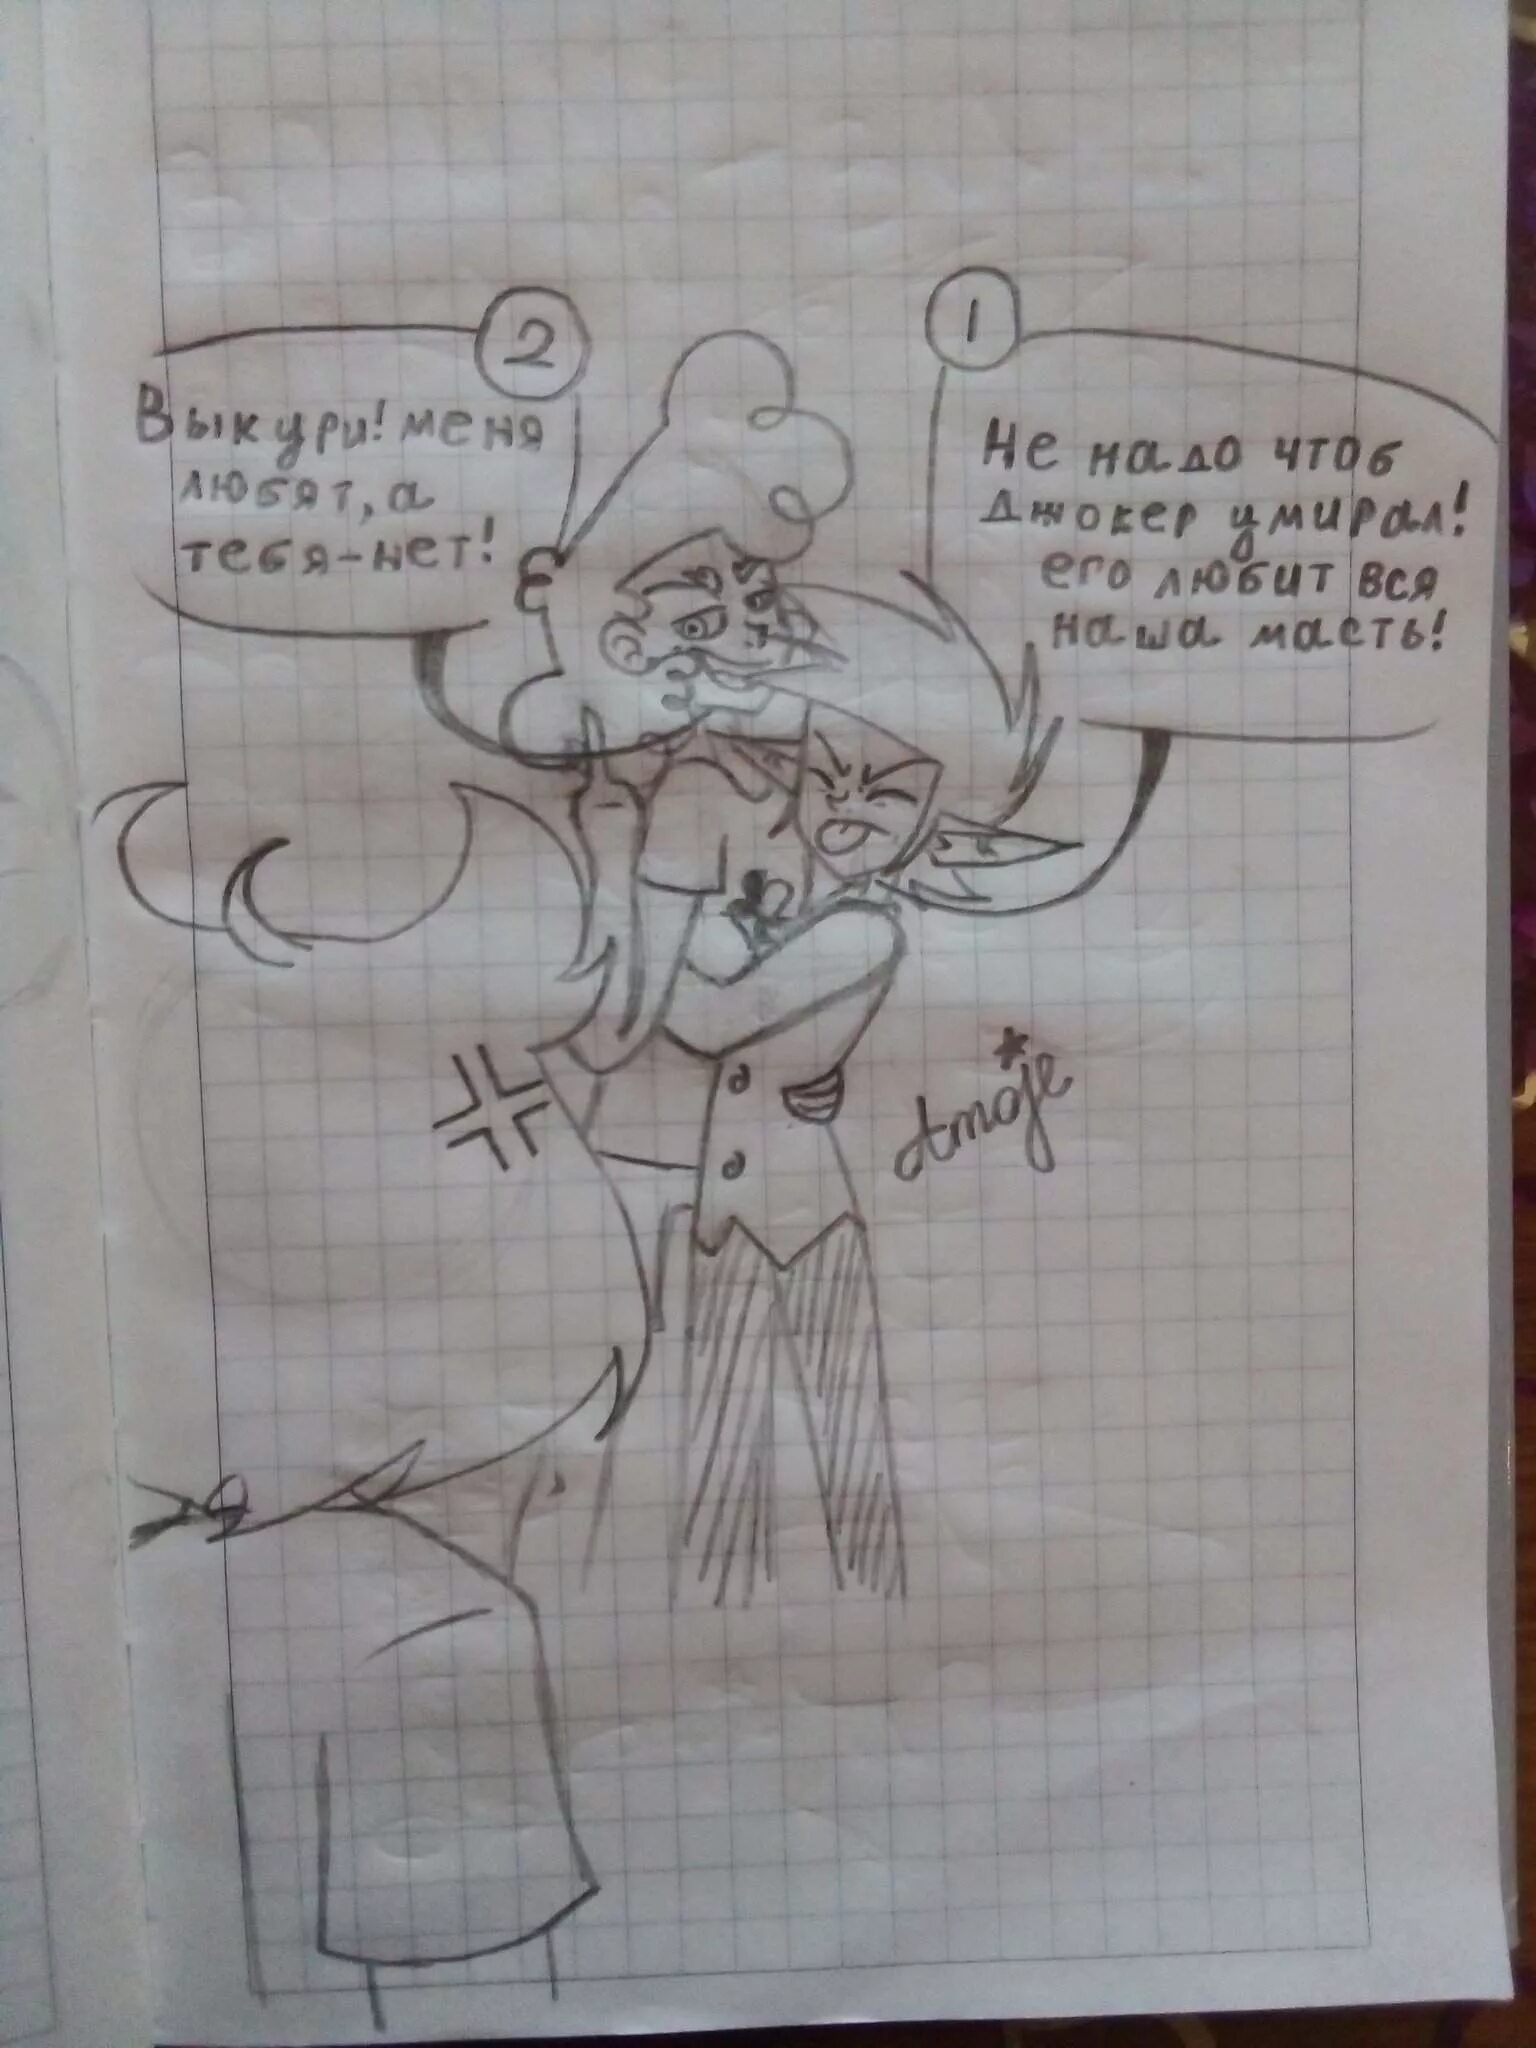 2
Выкури! меня
любят, а
тебя-нет!
1
Не надо чтоб
Джокер умирал!
его любит вся
наша масть!
Amoje